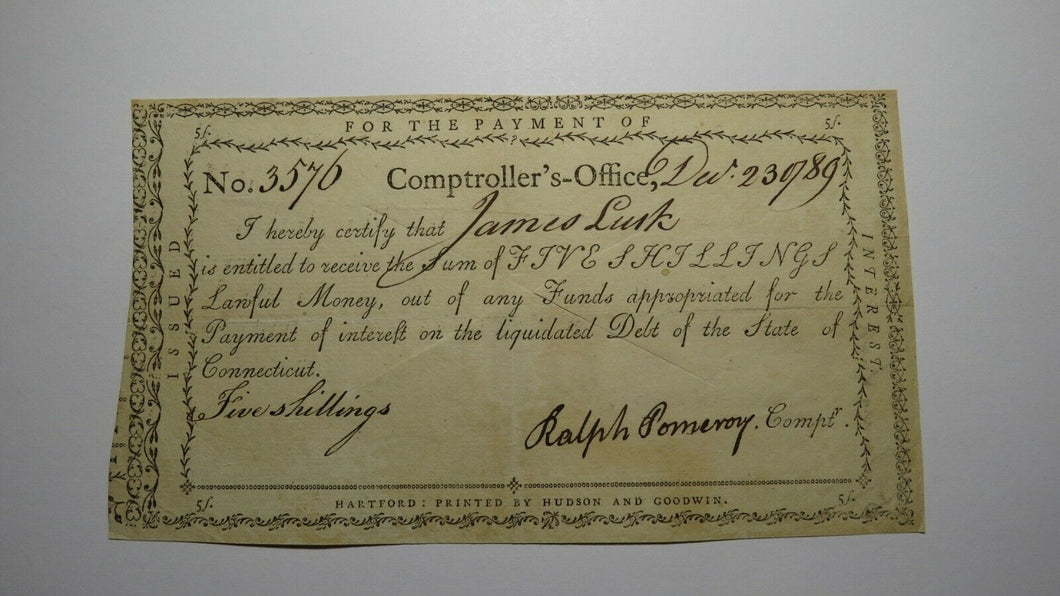 FOR THE PAYMENT OF
5/. 5/.
No. 3576 Comptroller's-Office, Decr. 23d 1789
I hereby certify that James Lusk
is entitled to receive the Sum of FIVE SHILLINGS
Lawful Money, out of any Funds appropriated for the
Payment of intereſt on the liquidated Debt of the State of
Connecticut.
Five shillings
Ralph Pomeroy. Comptr.
5/. 5/.
HARTFORD: PRINTED BY HUDSON AND GOODWIN.
ISSUED
INTEREST.